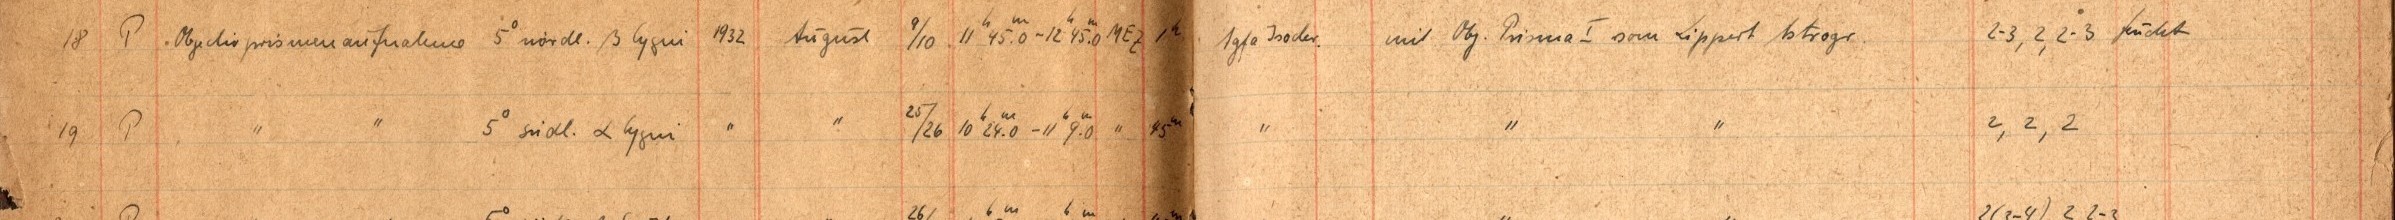 18 P Objectivprismenaufnahme 5° nördl. β Cygni 1932 August 9/10 11ʰ45ᵐ.0 - 12ʰ45ᵐ.0 MEZ 1ʰ Agfa Isochr. mit Obj. Prisma I vom Lippert Astrogr. 2-3, 2, 2-3 feucht
19 P " " 5° südl. α Cygni " " 25/26 10ʰ24ᵐ.0 - 11ʰ9ᵐ.0 " 45ᵐ " " " 2, 2, 2
5° 26/ 2(3-4) 2 2-3